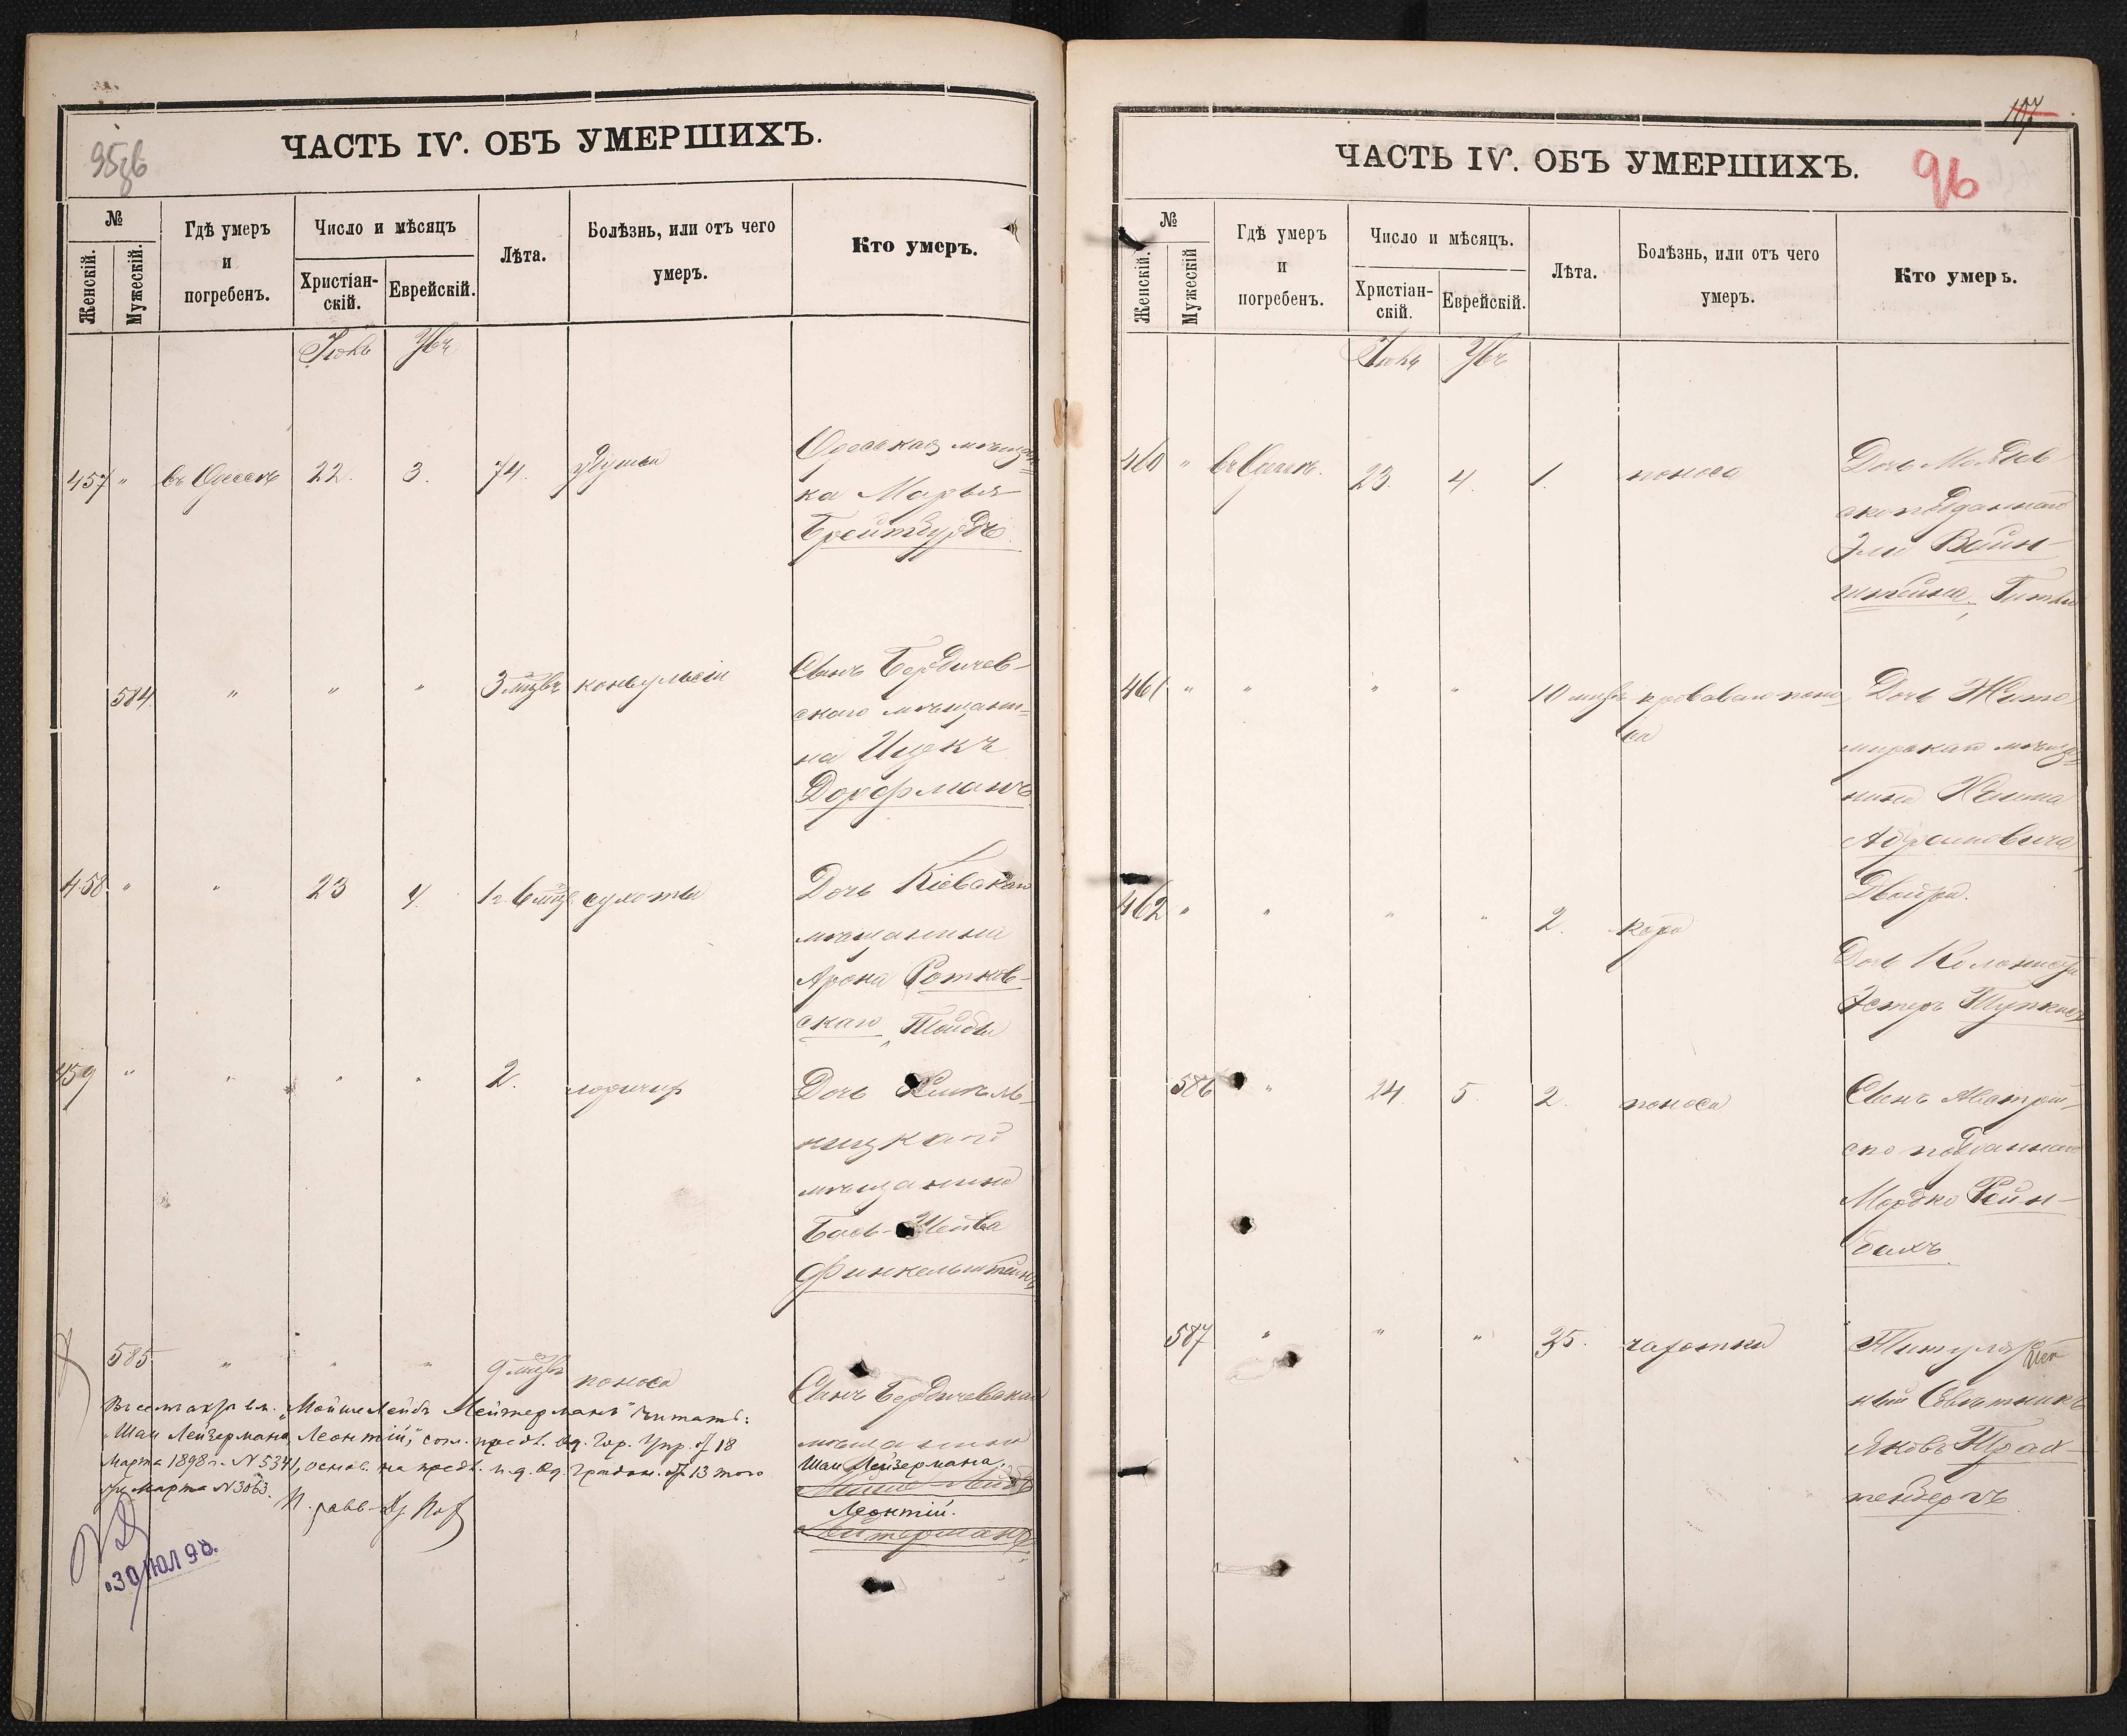 95об
ЧАСТЬ IV. ОБЪ УМЕРШИХЪ.
№
Женскій.
Мужескій.
Гдѣ умеръ
и
погребенъ.
Число и мѣсяцъ
Христіан-
скій.
Еврейскій.
Лѣта.
Болѣзнь, или отъ чего
умеръ.
Кто умеръ.
457 " въ Одессѣ 22. 3. 74.
Одесская мѣщан=
ка Марья
584 " " " 3 мѣсц. конвульсіи
Сынъ Бердичев-
скаго мѣщани=
на Ицекъ
Дорфманъ
458 " " 23 4. 1 г. 6 мѣс. сухоты
Дочь Кіевскаго
мѣщанина
Арона Ротков-
скаго,
459 " " " " 2.
Дочь Хмѣль-
ницкаго
мѣщанина
Бася-Шейва
Финкельштейнъ
585 " " " 9 мѣсц. поноса
Сынъ Бердичевскаго
мѣщанина
Шаи Лейзермана,
Леонтій.
"Мойше Лейбъ Лейтерманъ" читать:
"Шаи Лейзермана, Леонтій," согл. предл. Од. Гор. Упр. от 18
Марта 1898 г. № 5341, основ. на предл. и.д. Од. Градон. от 13 того
же марта № 3063.
30 ІЮЛ 98.
107
96
ЧАСТЬ IV. ОБЪ УМЕРШИХЪ.
№
Женскій.
Мужескій
Гдѣ умеръ
и
погребенъ.
Число и мѣсяцъ.
Христіан-
скій.
Еврейскій.
Лѣта.
Болѣзнь, или отъ чего
умеръ.
Кто умеръ.
460 " въ Одессѣ. 23. 4. 1. поноса
Дочь Молдав-
скоподданнаго
Эли Вайн-
штейна,
461 " " " " 10 мѣсц. кроваваго поно
са
Дочь Жито
мирскаго мѣща=
нина Хаима
Абрамовича,
Двойра.
462 " " " " 2. корь
Дочь Колониста
Эстеръ
586 " 24. 5. 2. поноса
Сынъ Австрій-
ско подданнаго
Мордко Рейн-
бахъ
587 " " " 35. чахотки
Титуляр
ный Совѣтникъ
Яковъ Трах-
тенбергъ